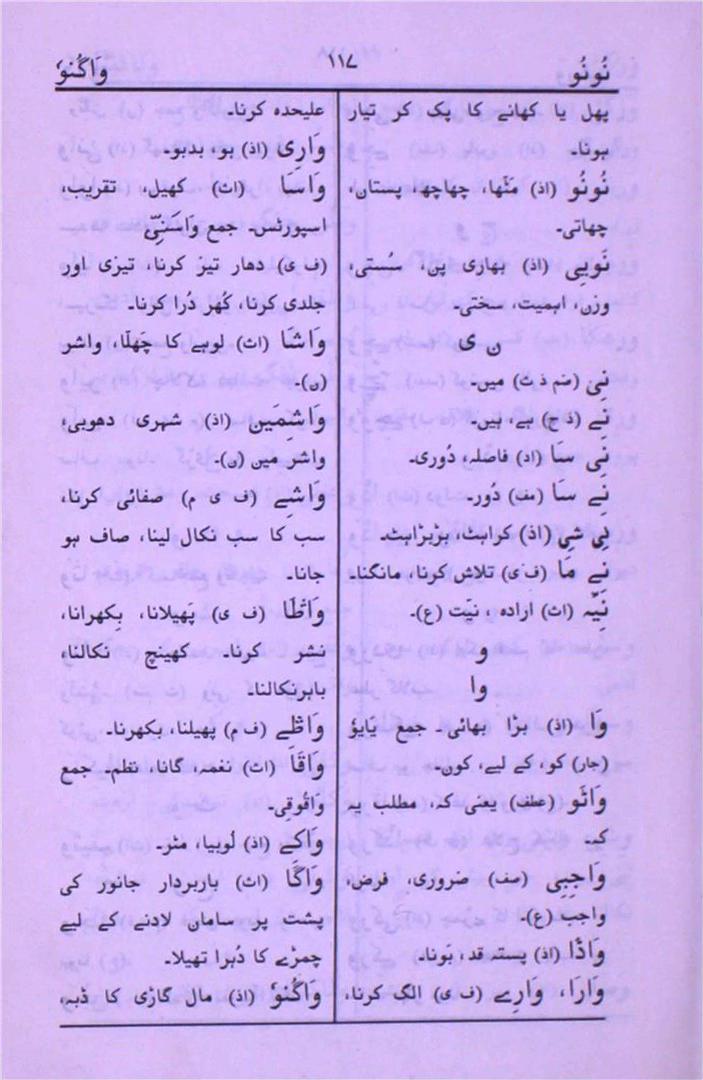 نُونُو
۱۱۷
وَاگُنوٗ
پھل یا کھانے کا پک کر تیار
ہونا۔
نُونُو (اذ) مٹھا، چھاچھ، پستان،
چھاتی۔
نَوبِی (اذ) بھاری پن، سُستی،
وزن، اہمیت، سختی۔
ن ی
نِی (ضم ذ ث) میں۔
نَے (ذ ج) ہے، ہیں۔
نَی سَا (اد) فاصلہ، دُوری۔
نِے سَا (مف) دُور۔
نِی شِی (اذ) کراہٹ، بڑبڑاہٹ۔
نِے مَا (ف ی) تلاش کرنا، مانگنا۔
نِیّہ (اث) ارادہ، نیّت (ع)۔
و
وا
وَا (اذ) بڑا بھائی۔ جمع یایوٗ
(جار) کو، کے لیے، کوں۔
وَاتَو (عطف) یعنی کہ، مطلب یہ
کہ۔
وَاجبِی (صف) ضروری، فرض،
واجب (ع)۔
وَاڈَا (اذ) پستہ قد، بَونا۔
وَارَا، وَارِے (ف ی) الگ کرنا،
علیحدہ کرنا۔
وَارِی (اذ) بو، بدبو۔
وَاسَا (اث) کھیل، تقریب،
اسپورٹس۔ جمع وَاسَنِیّ
(ف ی) دھار تیز کرنا، تیزی اور
جلدی کرنا، کُھر دُرا کرنا۔
وَاشَا (اث) لوہے کا چھلّا، واشر
(ن)۔
وَاشِمین (اذ) شہری دھوبی،
واشر مین (ن)۔
وَاشے (ف ی م) صفائی کرنا،
سب کا سب نکال لینا، صاف ہو
جانا۔
وَاظَا (ف ی) پَھیلانا، بِکھرانا،
نشر کرنا۔ کھینچ نکالنا،
باہرنکالنا۔
وَاظے (ف م) پھیلنا، بکھرنا۔
وَاقَا (اث) نغمہ، گانا، نظم۔ جمع
وَاقوقِی۔
وَاکے (اذ) لُوبیا، مٹر۔
وَاگَا (اث) باربردار جانور کی
پشت پر سامان لادنے کے لیے
چمڑے کا دُہرا تھیلا۔
وَاگُنوٗ (اذ) مال گاڑی کا ڈبہ،